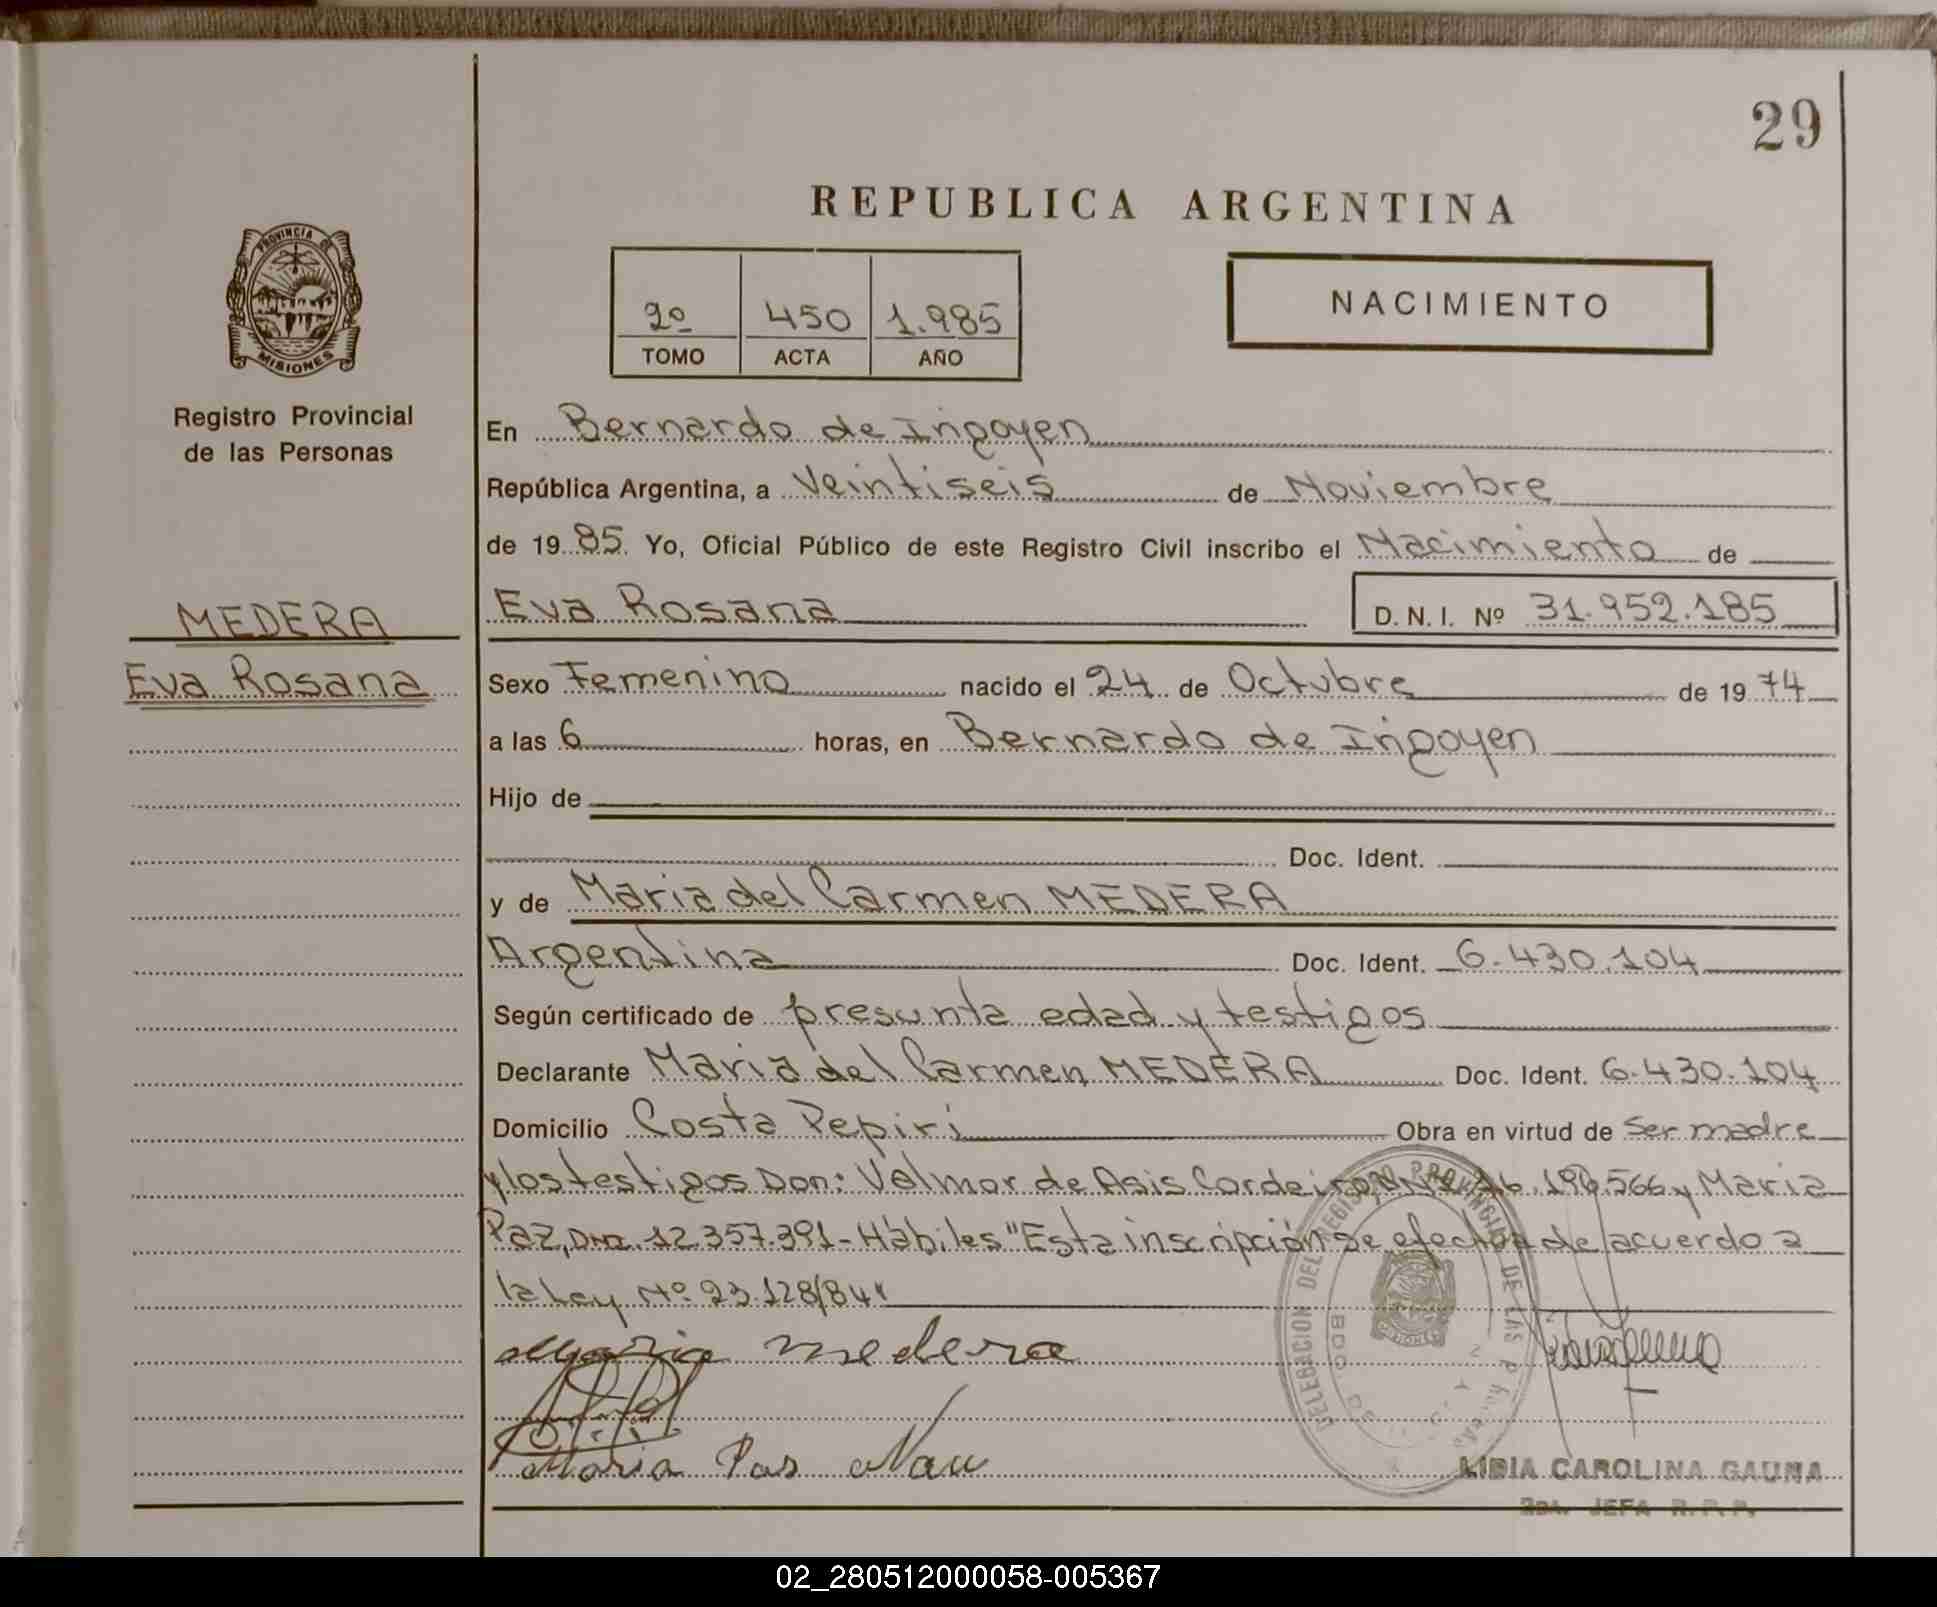 29
REPUBLICA ARGENTINA
PROVINCIA DE
MISIONES
2º 450 1.985
TOMO ACTA AÑO
NACIMIENTO
Registro Provincial
de las Personas
En Bernardo de Irigoyen
República Argentina, a Veintiseis de Noviembre
de 1985. Yo, Oficial Público de este Registro Civil inscribo el Nacimiento de
MEDERA
Eva Rosana
Eva Rosana D.N.I. Nº 31.952.185
Sexo Femenino nacido el 24 de Octubre de 1974
a las 6 horas, en Bernardo de Irigoyen
Hijo de
Doc. Ident.
y de Maria del Carmen MEDERA
Argentina Doc. Ident. 6.430.104
Según certificado de presunta edad y testigos
Declarante Maria del Carmen MEDERA Doc. Ident. 6.430.104
Domicilio Costa Pepiri Obra en virtud de Ser madre
y los testigos Don: Valmor de Asis Cordeiro, 196.566 y Maria
Paz, DNI. 12.357.391 - Hábiles "Esta inscripción se efectúa de acuerdo a
la Ley Nº 23.128/84"
Maria medera
Maria Pas Nau
DELEGACION DEL REGISTRO PROVINCIAL DE LAS P
LIDIA CAROLINA GAUNA
JEFA R.P.P.
02_280512000058-005367